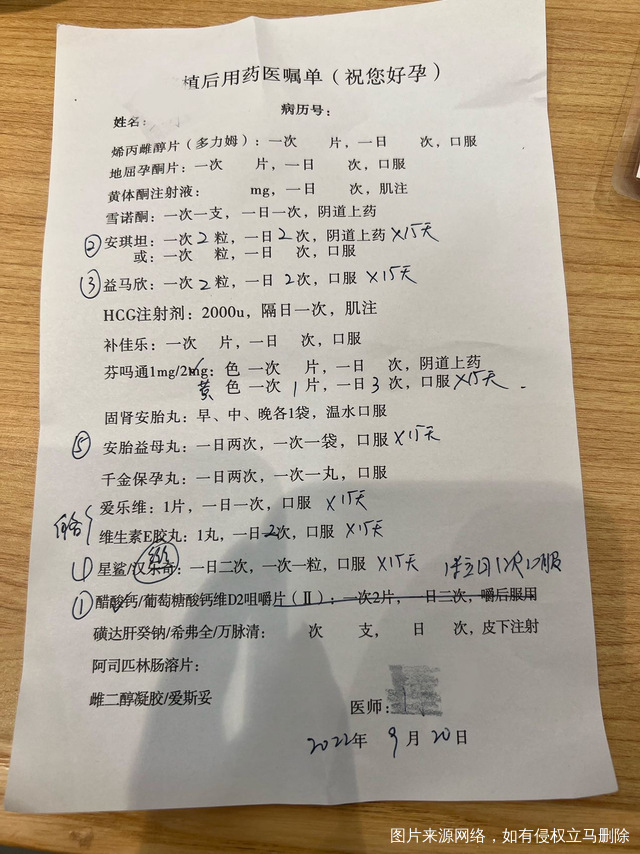 植后用药医嘱单（祝您好孕）
病历号：
姓名：
烯丙雌醇片（多力姆）：一次 片，一日 次，口服
地屈孕酮片：一次 片，一日 次，口服
黄体酮注射液： mg，一日 次，肌注
雪诺酮：一次一支，一日一次，阴道上药
② 安琪坦：一次 2 粒，一日 2 次，阴道上药 X15天
或：一次 粒，一日 次，口服
③ 益马欣：一次 2 粒，一日 2次，口服 X15天
HCG注射剂：2000u，隔日一次，肌注
补佳乐：一次 片，一日 次，口服
芬吗通1mg/2mg：色 一次 片，一日 次，阴道上药
黄 色 一次 1 片，一日 3 次，口服 X15天
固肾安胎丸：早、中、晚各1袋，温水口服
⑤ 安胎益母丸：一日两次，一次一袋，口服 X15天
千金保孕丸：一日两次，一次一丸，口服
爱乐维：1片，一日一次，口服 X15天
维生素E胶丸：1丸，一日2次，口服 X15天
4 星鲨/汉乐奇：一日二次，一次一粒，口服 X15天
① 醋酸钙/葡萄糖酸钙维D2咀嚼片（Ⅱ）：一次2片，一日二次，嚼后服用
磺达肝癸钠/希弗全/万脉清： 次 支， 日 次，皮下注射
阿司匹林肠溶片：
雌二醇凝胶/爱斯妥
医师：
2022年 9 月 20日
图片来源网络，如有侵权立马删除